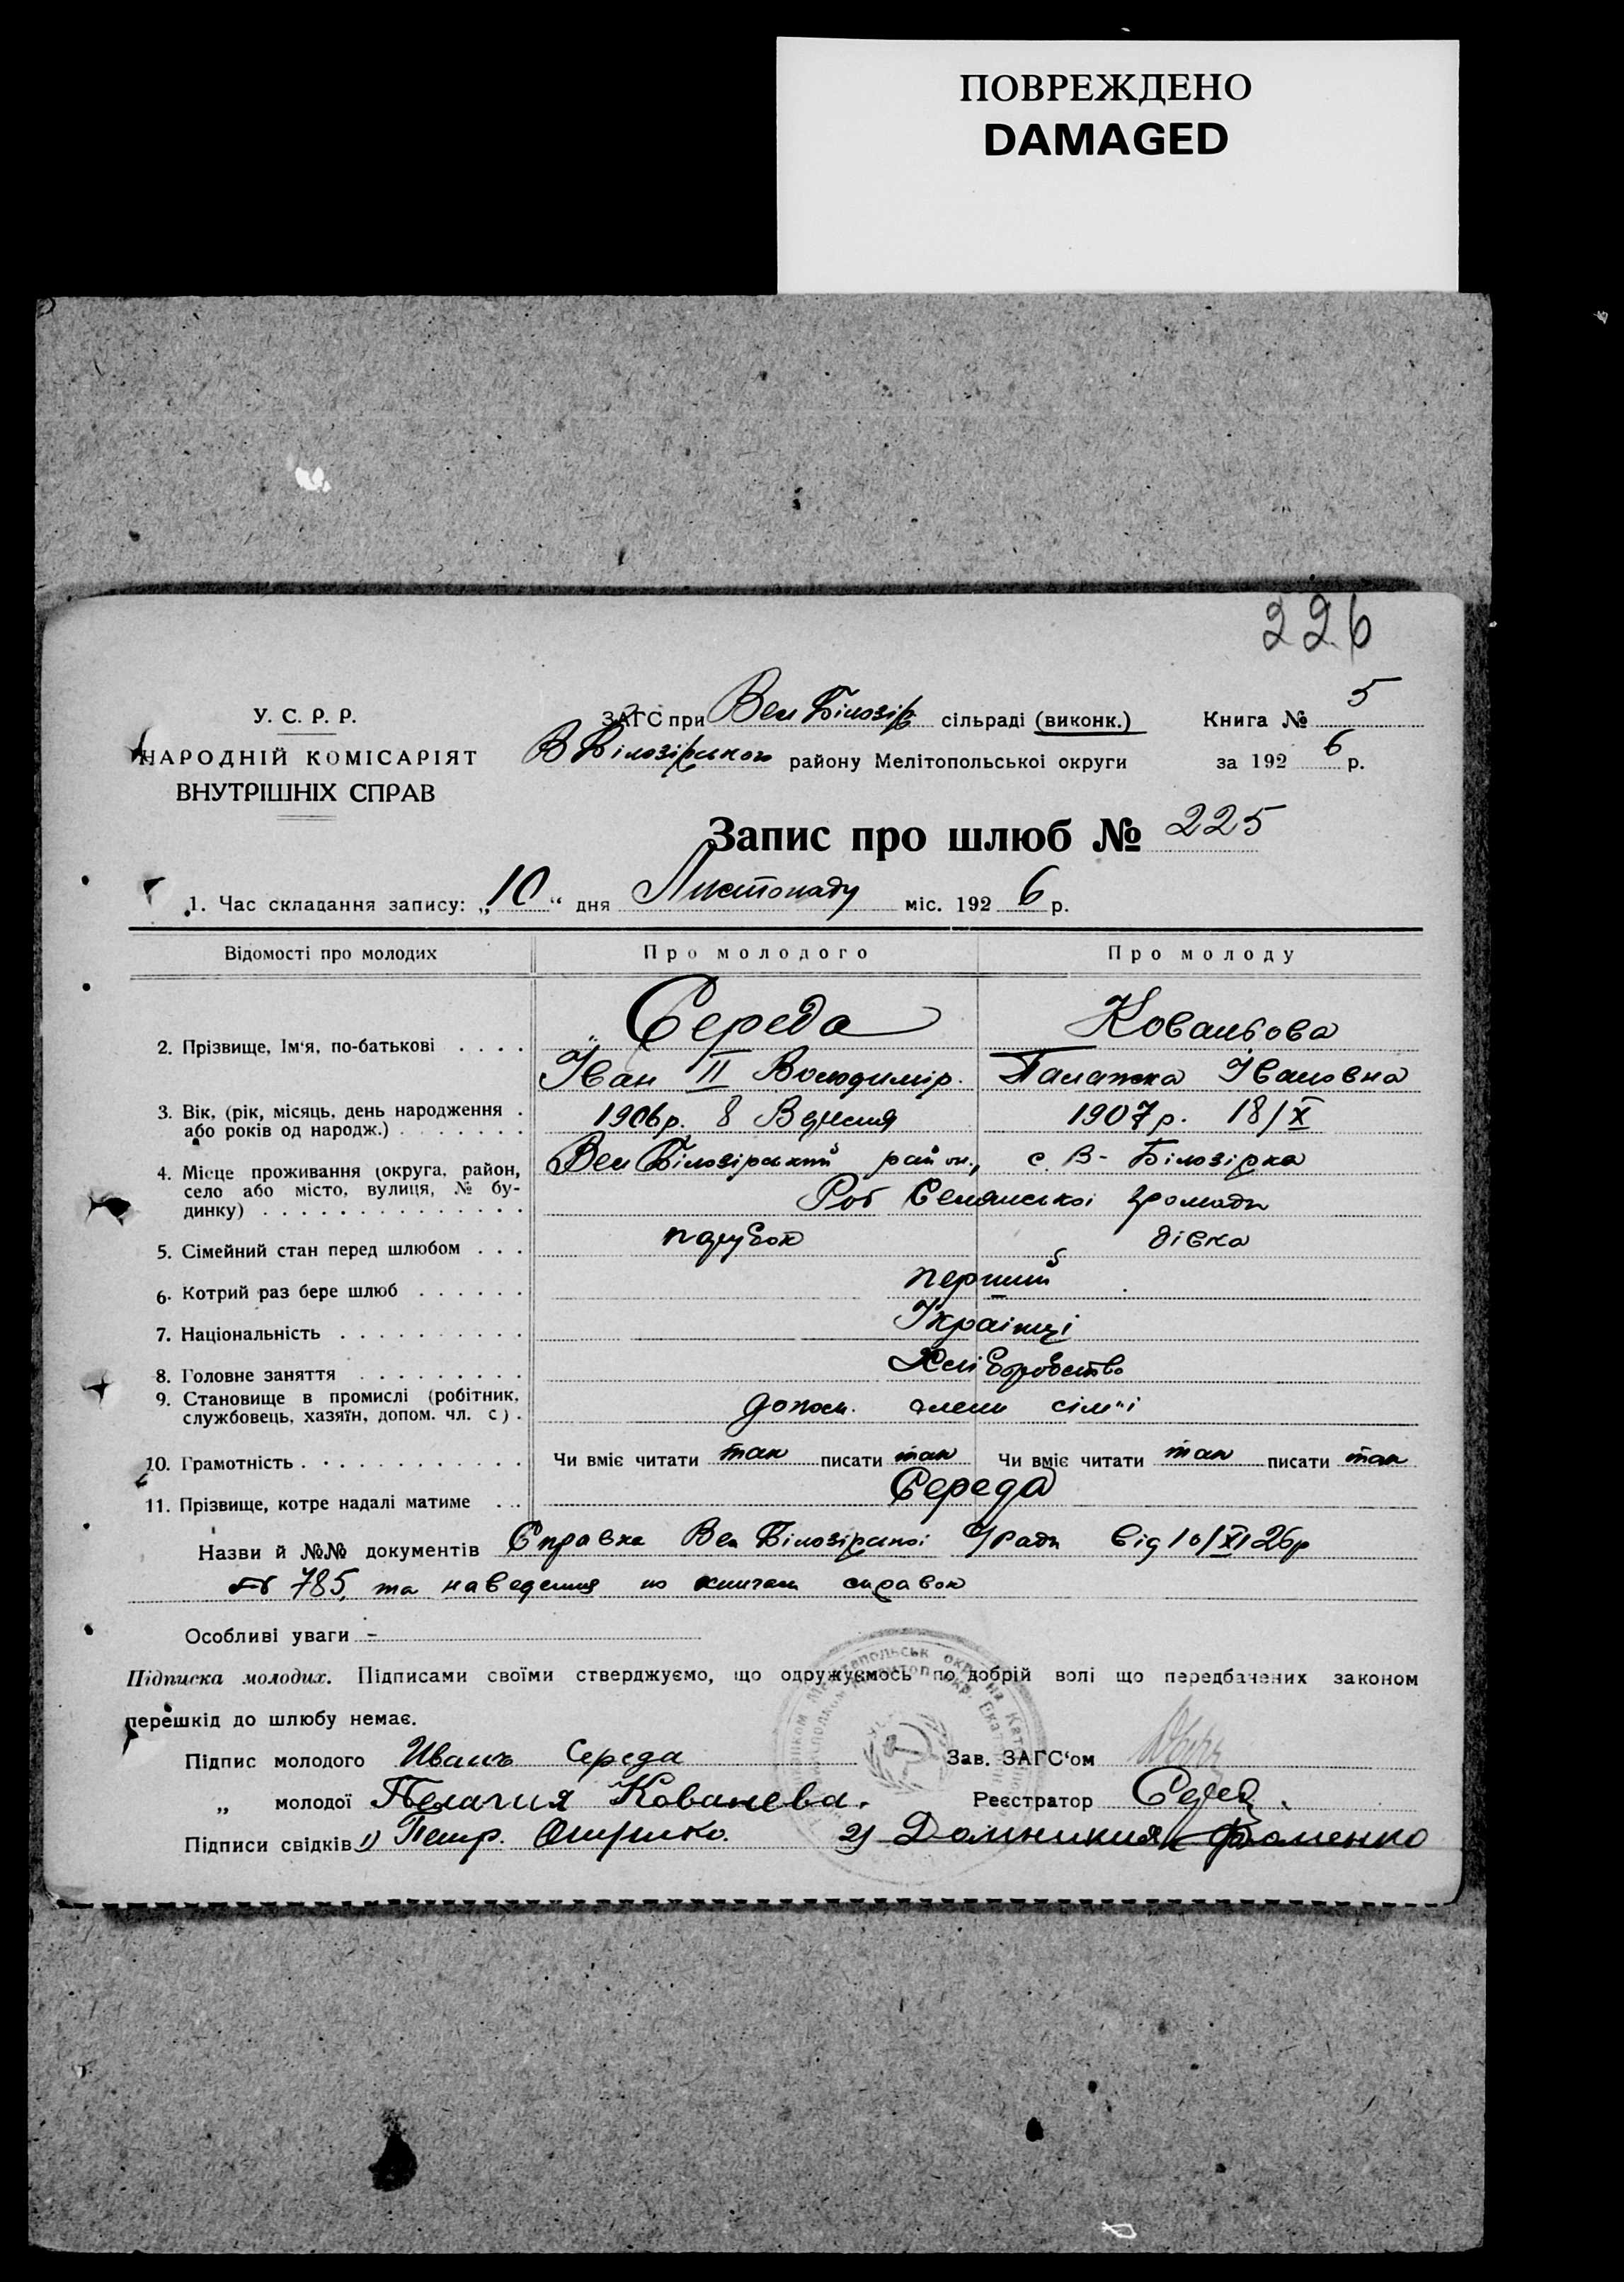 ПОВРЕЖДЕНО
DAMAGED
226
У. С. Р. Р.
НАРОДНІЙ КОМІСАРІЯТ
ВНУТРІШНІХ СПРАВ
ЗАГС при Вел Білозір сільраді (виконк.) Книга № 5
В Білозірського району Мелітопольської округи за 192 6 р.
Запис про шлюб № 225
1. Час складання запису: „10“ дня Листопаду міс. 192 6 р.
Відомості про молодих Про молодого Про молоду
2. Прізвище, Ім'я, по-батькові . . . . Середа Ковальова
Іван II Володимір. Палажка Івановна
3. Вік, (рік, місяць, день народження . або років од народж.) . . . . . . . 1906 р. 8 Вдресня 1907 р. 18/X
4. Місце проживання (округа, район, село або місто, вулиця, № будинку) . . . . . . . . . . . . . . Вел Білозірський район., с. В-Білозірка
Роб Селянської Громади
5. Сімейний стан перед шлюбом . . . парубок дівка
6. Котрий раз бере шлюб . . . . . . перший
7. Національність . . . . . . . . . . Українці
8. Головне заняття . . . . . . . . . Хліборобство
9. Становище в промислі (робітник, службовець, хазяїн, допом. чл. с) . допом. члени сім'ї
10. Грамотність . . . . . . . . . . . . Чи вміє читати так писати так Чи вміє читати так писати так
11. Прізвище, котре надалі матиме . . . Середа
Назви й №№ документів Справка Вел Білозірської С/Ради від 10/XI 26р
№ 785, та наведення по книгам справок
Особливі уваги -
Підписка молодих. Підписами своїми стверджуємо, що одружуємось по добрій волі що передбачених законом
перешкід до шлюбу немає.
Підпис молодого Иванъ Середа Зав. ЗАГС'ом
„ молодої Пелагия Ковалева. Реєстратор
Підписи свідків 1) Петр. 2) Домникия Фоменко